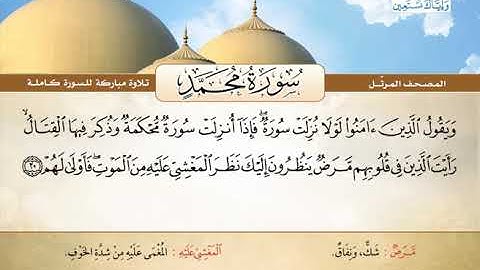 وَإِيَّاكَ نَسْتَعِينُ
المصحف المرتّل
سُورَةُ مُحَمَّدٍ
تلاوة مباركة للسورة كاملة
وَيَقُولُ الَّذِينَ ءَامَنُوا۟ لَوْلَا نُزِّلَتْ سُورَةٌ ۖ فَإِذَآ أُنزِلَتْ سُورَةٌ مُّحْكَمَةٌ وَذُكِرَ فِيهَا الْقِتَالُ ۙ
رَأَيْتَ الَّذِينَ فِى قُلُوبِهِم مَّرَضٌ يَنظُرُونَ إِلَيْكَ نَظَرَ الْمَغْشِىِّ عَلَيْهِ مِنَ الْمَوْتِ ۖ فَأَوْلَىٰ لَهُمْ ٢٠
مَرَضٌ : شَكٌّ، وَنِفَاقٌ.
الْمَغْشِيِّ عَلَيْهِ : الْمُغْمَى عَلَيْهِ مِنْ شِدَّةِ الْخَوْفِ.